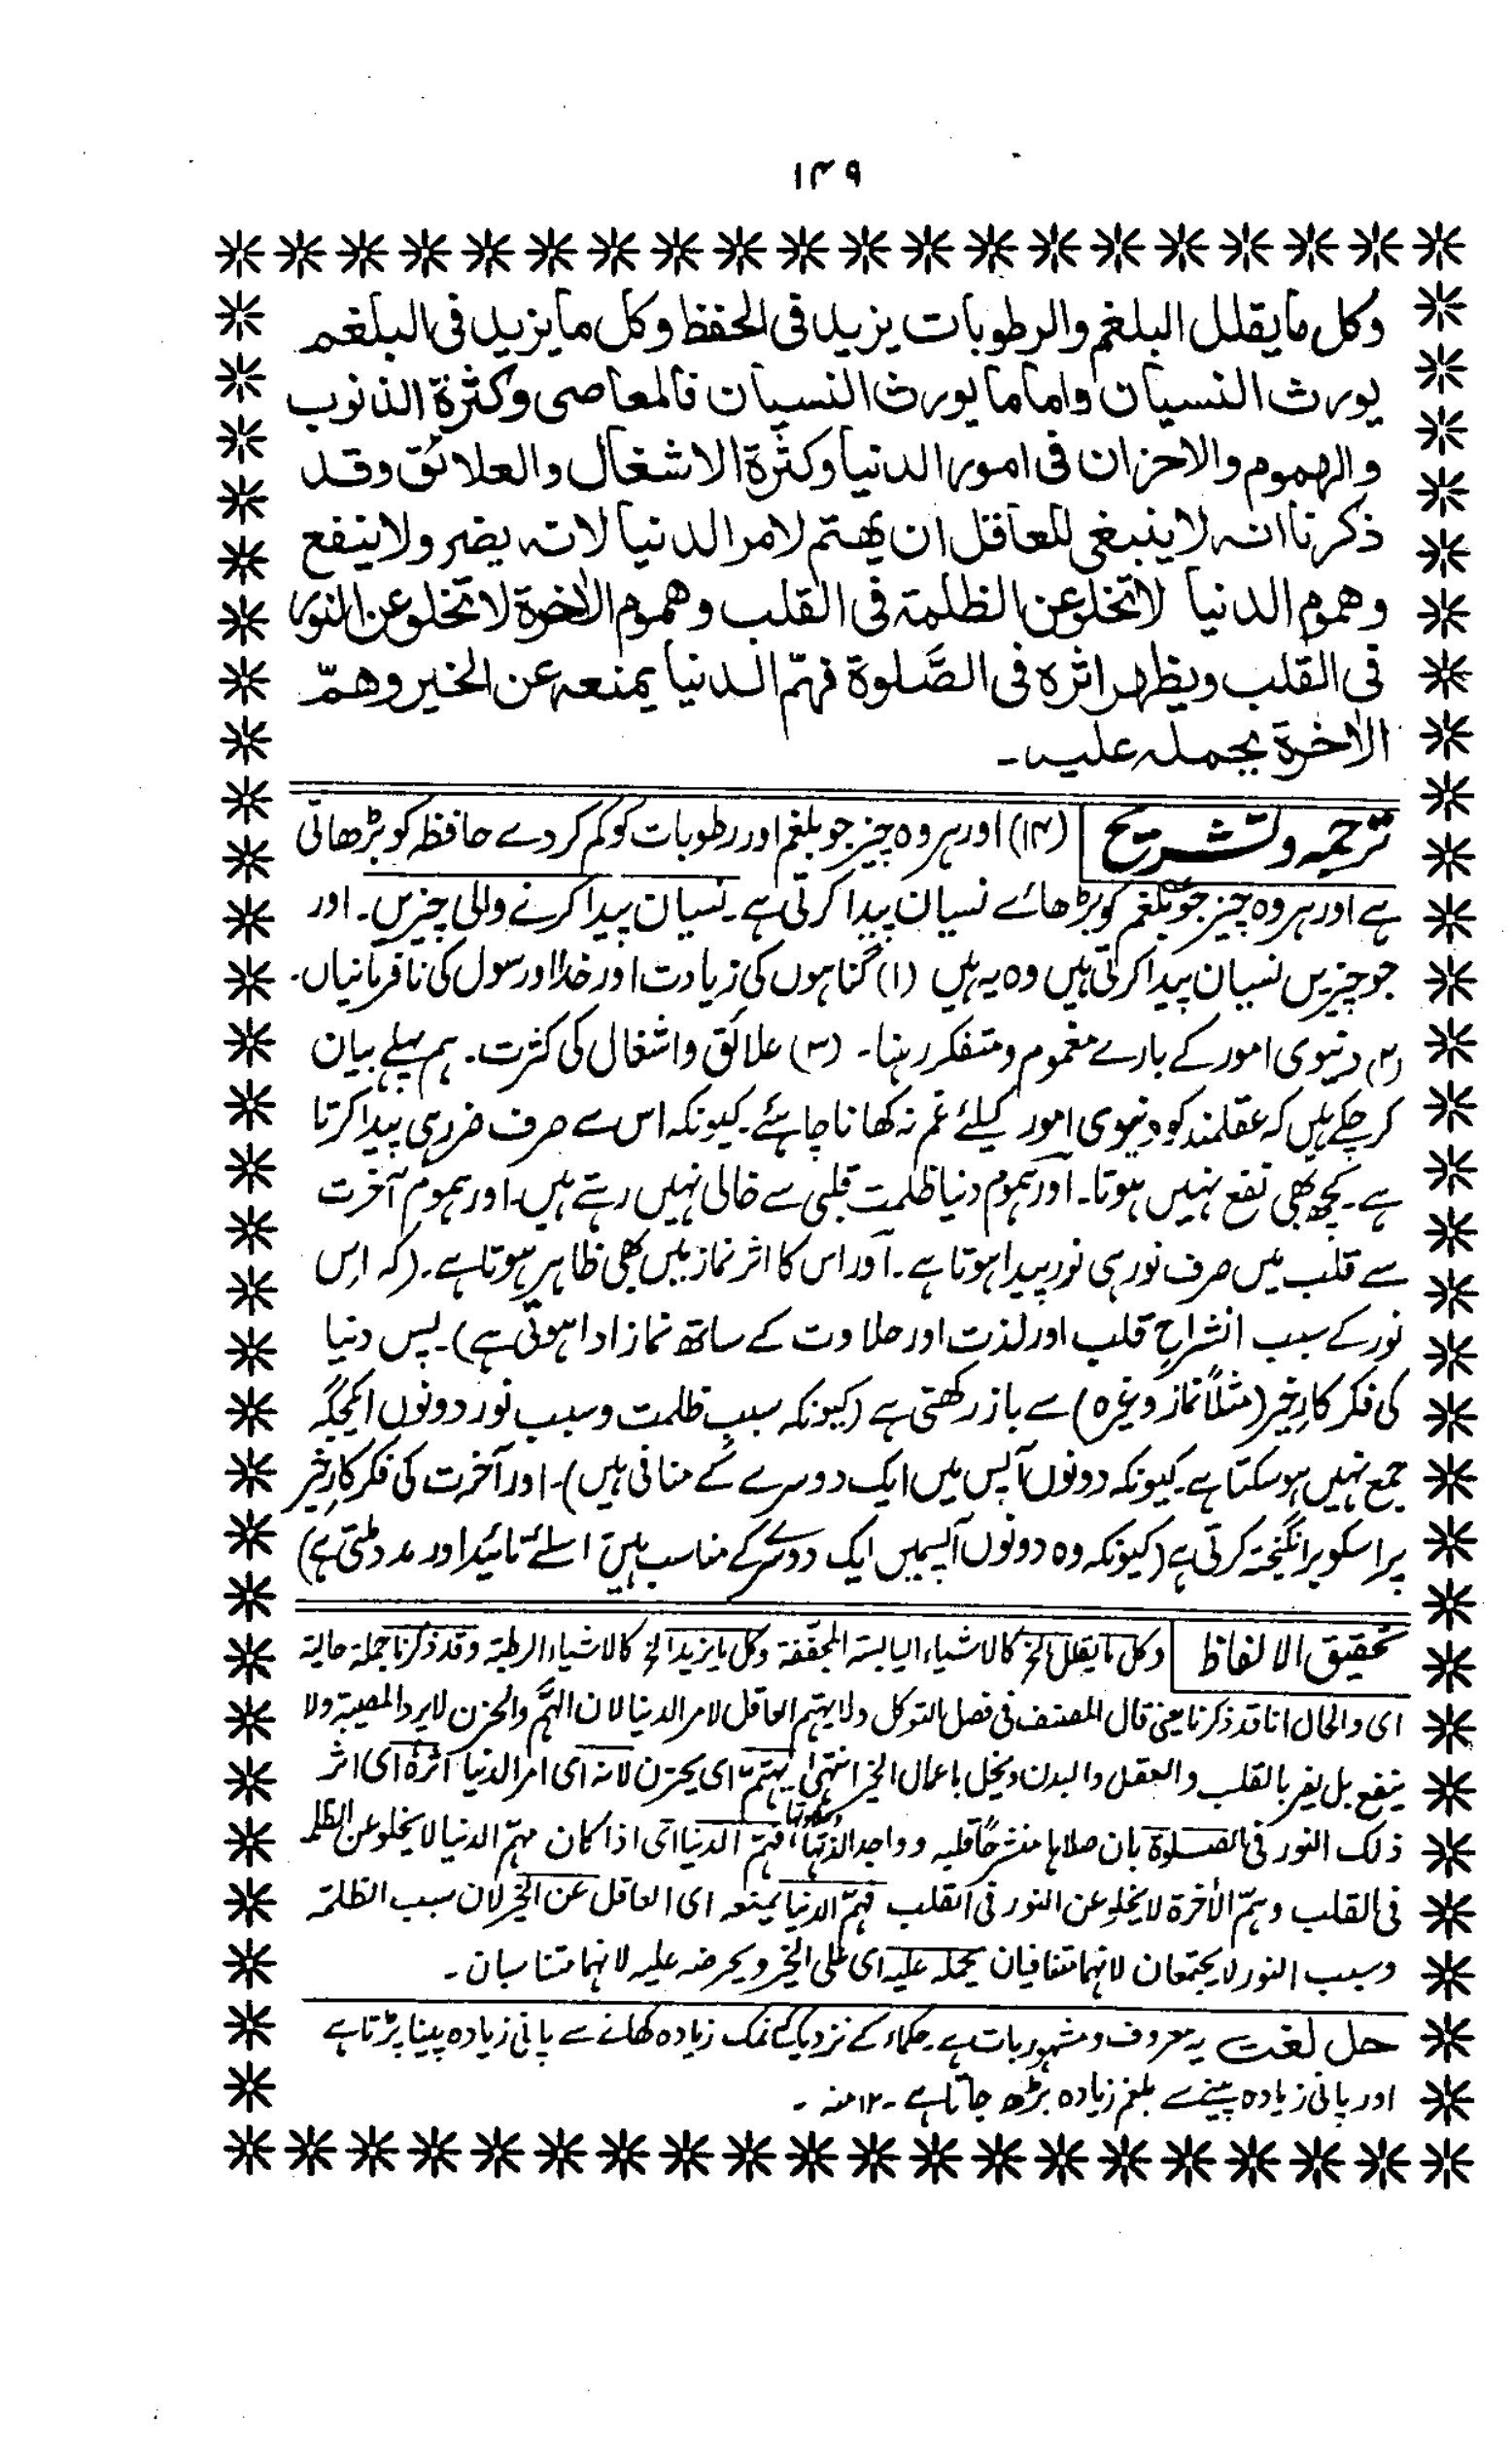 ۱۴۹
وکل مایقلل البلغم والرطوبات یزید فی الحفظ وکل مایزید فی البلغم
یورث النسیان واما ما یورث النسیان فالمعاصی وکثرة الذنوب
والهموم والاحزان فی امور الدنیا وکثرة الاشغال والعلائق وقد
ذکرنا انه لاینبغی للعاقل ان یهتم لامر الدنیا لانه یضر ولاینفع
وهموم الدنیا لاتخلو عن الظلمة فی القلب وهموم الاٰخرة لاتخلو عن النور
فی القلب ویظهر اثره فی الصَّلوة فهمّ الدنیا یمنعه عن الخیر وهمّ
الاٰخرة یحمله علیه۔
ترجمہ وتشریح (۱۴) اور ہر وہ چیز جو بلغم اور رطوبات کو کم کردے حافظہ کو بڑھاتی
ہے اور ہر وہ چیز جو بلغم کو بڑھائے نسیان پیدا کرتی ہے۔ نسیان پیدا کرنے والی چیزیں۔ اور
جو چیزیں نسیان پیدا کرتی ہیں وہ یہ ہیں (۱) گناہوں کی زیادت اور خدا اور رسول کی نافرمانیاں۔
(۲) دنیوی امور کے بارے مغموم ومتفکر رہنا۔ (۳) علائق واشغال کی کثرت۔ ہم پہلے بیان
کرچکے ہیں کہ عقلمند کو دنیوی امور کیلئے غم نہ کھانا چاہئے۔ کیونکہ اس سے صرف ضرر ہی پیدا کرتا
ہے۔ کچھ بھی نفع نہیں ہوتا۔ اور ہموم دنیا ظلمت قلبی سے خالی نہیں رہتے ہیں۔ اور ہموم آخرت
سے قلب میں صرف نور ہی نور پیدا ہوتا ہے۔ اور اس کا اثر نماز میں بھی ظاہر ہوتا ہے۔ (کہ اس
نور کے سبب انشراحِ قلب اور لذت اور حلاوت کے ساتھ نماز ادا ہوتی ہے)۔ پس دنیا
کی فکر کارِ خیر (مثلاً نماز وغیرہ) سے باز رکھتی ہے (کیونکہ سببِ ظلمت وسبب نور دونوں ایکجگہ
جمع نہیں ہوسکتا ہے۔ کیونکہ دونوں آپس میں ایک دوسرے کے منافی ہیں)۔ اور آخرت کی فکر کارِ خیر
پر اسکو برانگیختہ کرتی ہے (کیونکہ وہ دونوں آپسمیں ایک دوسرے کے مناسب ہیں اسلئے تائید اور مدد ملتی ہے)
تحقیق الالفاظ وکل مایقلل الخ کالاشیاء الیابسة المجففة وکل مایزید الخ کالاشیاء الرطبة وقد ذکرنا جملة حالیة
ای والحال انا قد ذکرنا یعنی قال المصنف فی فصل التوکل ولا یهتم العاقل لامر الدنیا لان الهَمَّ والحزن لایرد المصیبة ولا
ینفع بل یضر بالقلب والعقل والبدن ویخل باعمال الخیر انتهیٰ یهتم ای یحزن لانه ای امر الدنیا اثره ای اثر
ذلک النور فی الصلوة بان صلاها منشرحًا قلبه وواجد الذتها وحلاوتها، فهمّ الدنیا ای اذا کان مهمّ الدنیا لایخلو عن الظلمة
فی القلب وهمّ الاٰخرة لایخلو عن النور فی القلب فهمّ الدنیا یمنعه ای العاقل عن الخیر لان سبب الظلمة
وسبب النور لایجتمعان لانهما متنافیان یحمله علیه ای علی الخیر ویحرضه علیه لانهما متناسبان۔
حل لغت یہ معروف ومشہور بات ہے۔ حکماء کے نزدیک کہ نمک زیادہ کھانے سے پانی زیادہ پینا پڑتا ہے
اور پانی زیادہ پینے سے بلغم زیادہ بڑھ جاتا ہے۔ ۱۲ منہ ۔